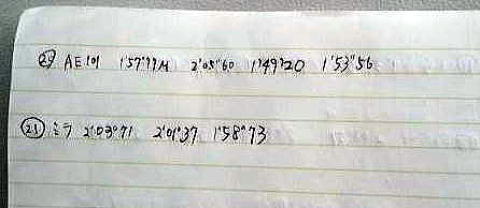 AE101 1'57"77M 2'05"60 1'49"20 1'53"56
㉑ ミラ 2'03"71 2'01"37 1'58"73